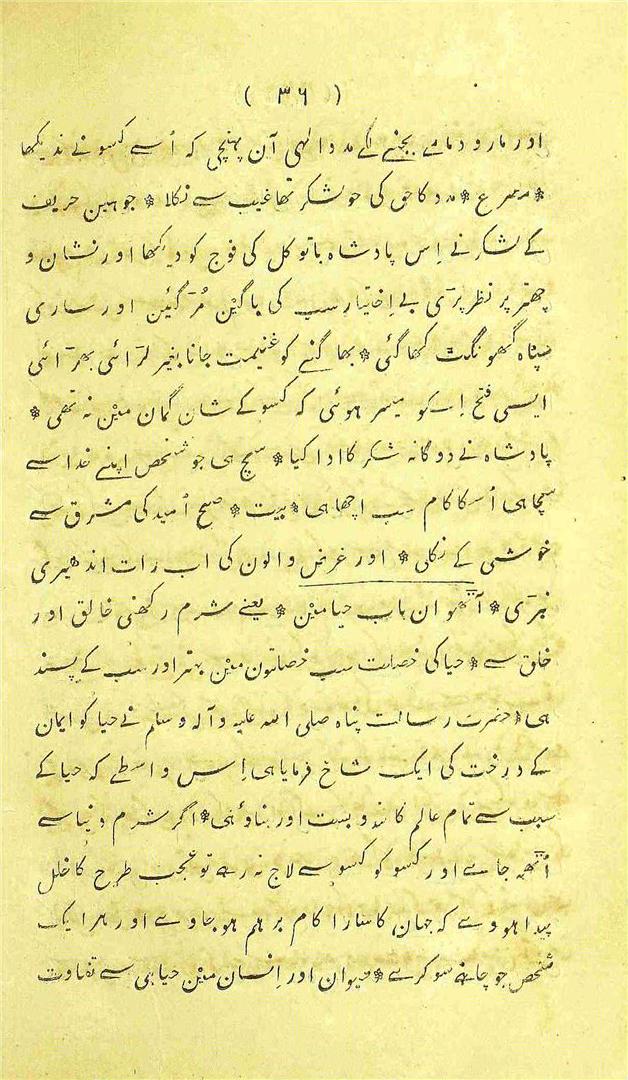 ( ٣٦ )
اور مارو دمامے بجنے لگے مدد الہی آن پہنچی کہ اُسے کسو نے ندیکھا
* مصرع * مدد کا حق کی جو لشکر تھا غیب سے نکلا * جوہین حریف
کے لشکر نے اِس پادشاہ باتوکل کی فوج کو دیکھا اور نشان و
چھتر پر نظر پڑی بے اختیار سب کی باگین مُڑ گئین اور ساری
سپاہ گھونگٹ کھا گئی * بھاگنے کو غنیمت جانا بغیر لڑائی بھڑائی
ایسی فتح اِسکو میسر ہوئی کہ کسو کے شان گمان مین نہ تھی *
پادشاہ نے دوگانہ شکر کا ادا کیا * سچ ہی جو شخص اپنے خدا سے
سچا ہی اُسکا کام سب اچھا ہی * بیت * صبح اُمید کی مشرق سے
خوشی کے نکلی * اور غرض والون کی اب رات اندھیری
نبڑی * آٹھوان باب حیا مین * یعنے شرم رکھنی خالق اور
خلق سے * حیا کی خصلت سب خصلتون مین بہتر اور سب کے پسند
ہی * حضرت رسالت پناہ صلی اللہ علیہ وآلہ وسلم نے حیا کو ایمان
کے درخت کی ایک شاخ فرمایا ہی اِس واسطے کہ حیا کے
سبب سے تمام عالم کا بندوبست اور بناؤ ہی * اگر شرم دنیا سے
اُٹھہ جاے اور کسو کو کسو سے لاج نہ رہے تو عجب طرح کا خلل
پیدا ہووے کہ جہان کا سارا کام برہم ہو جاوے اور ہر ایک
شخص جو چاہے سو کرے * حیوان اور اِنسان مین حیا ہی سے تفاوت